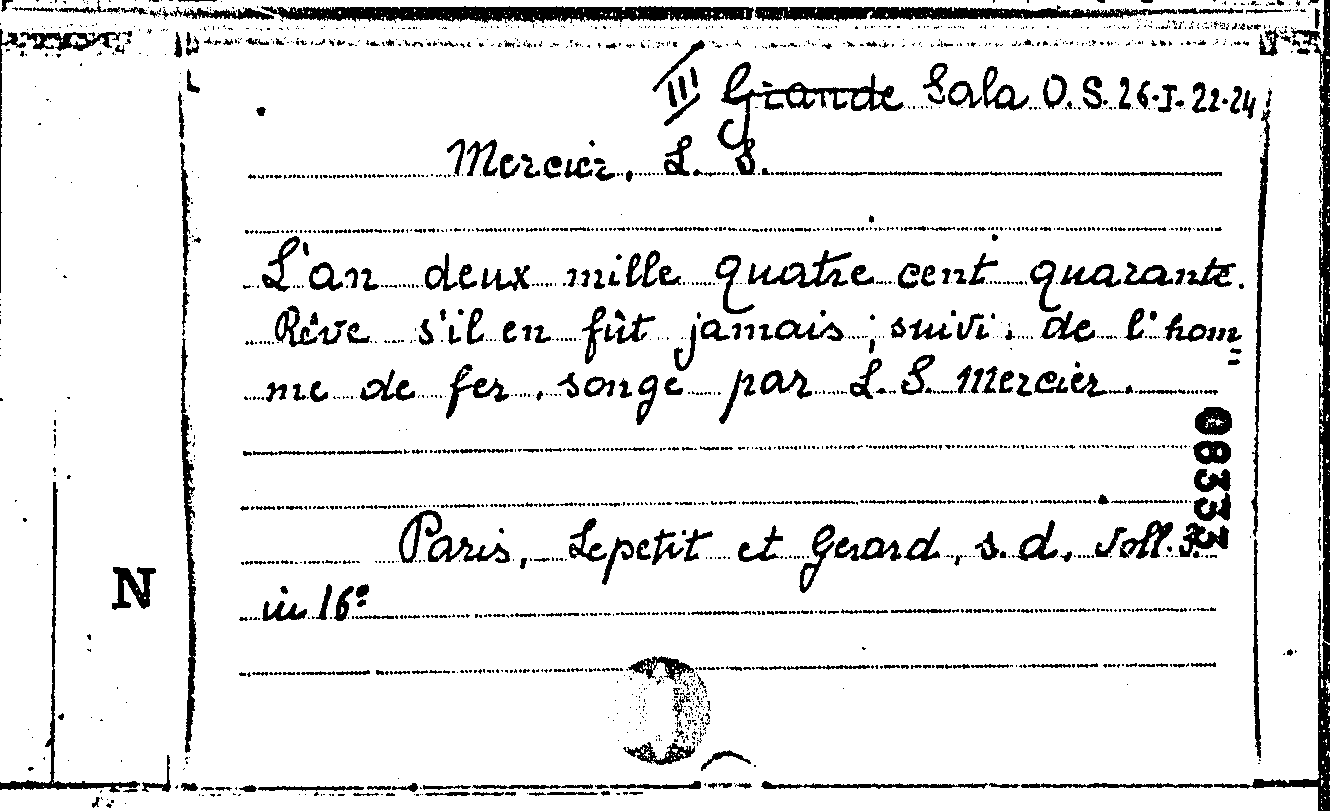 III Grande Sala O.S. 26.I.22-24
Mercier, L. S.
L'an deux mille quatre cent quarante.
Rêve s'il en fût jamais; suivi de l'hom=
me de fer, songe par L. S. Mercier.
08333
Paris, Lepetit et Gerard, s. d. Voll. 3.
N
in 16º